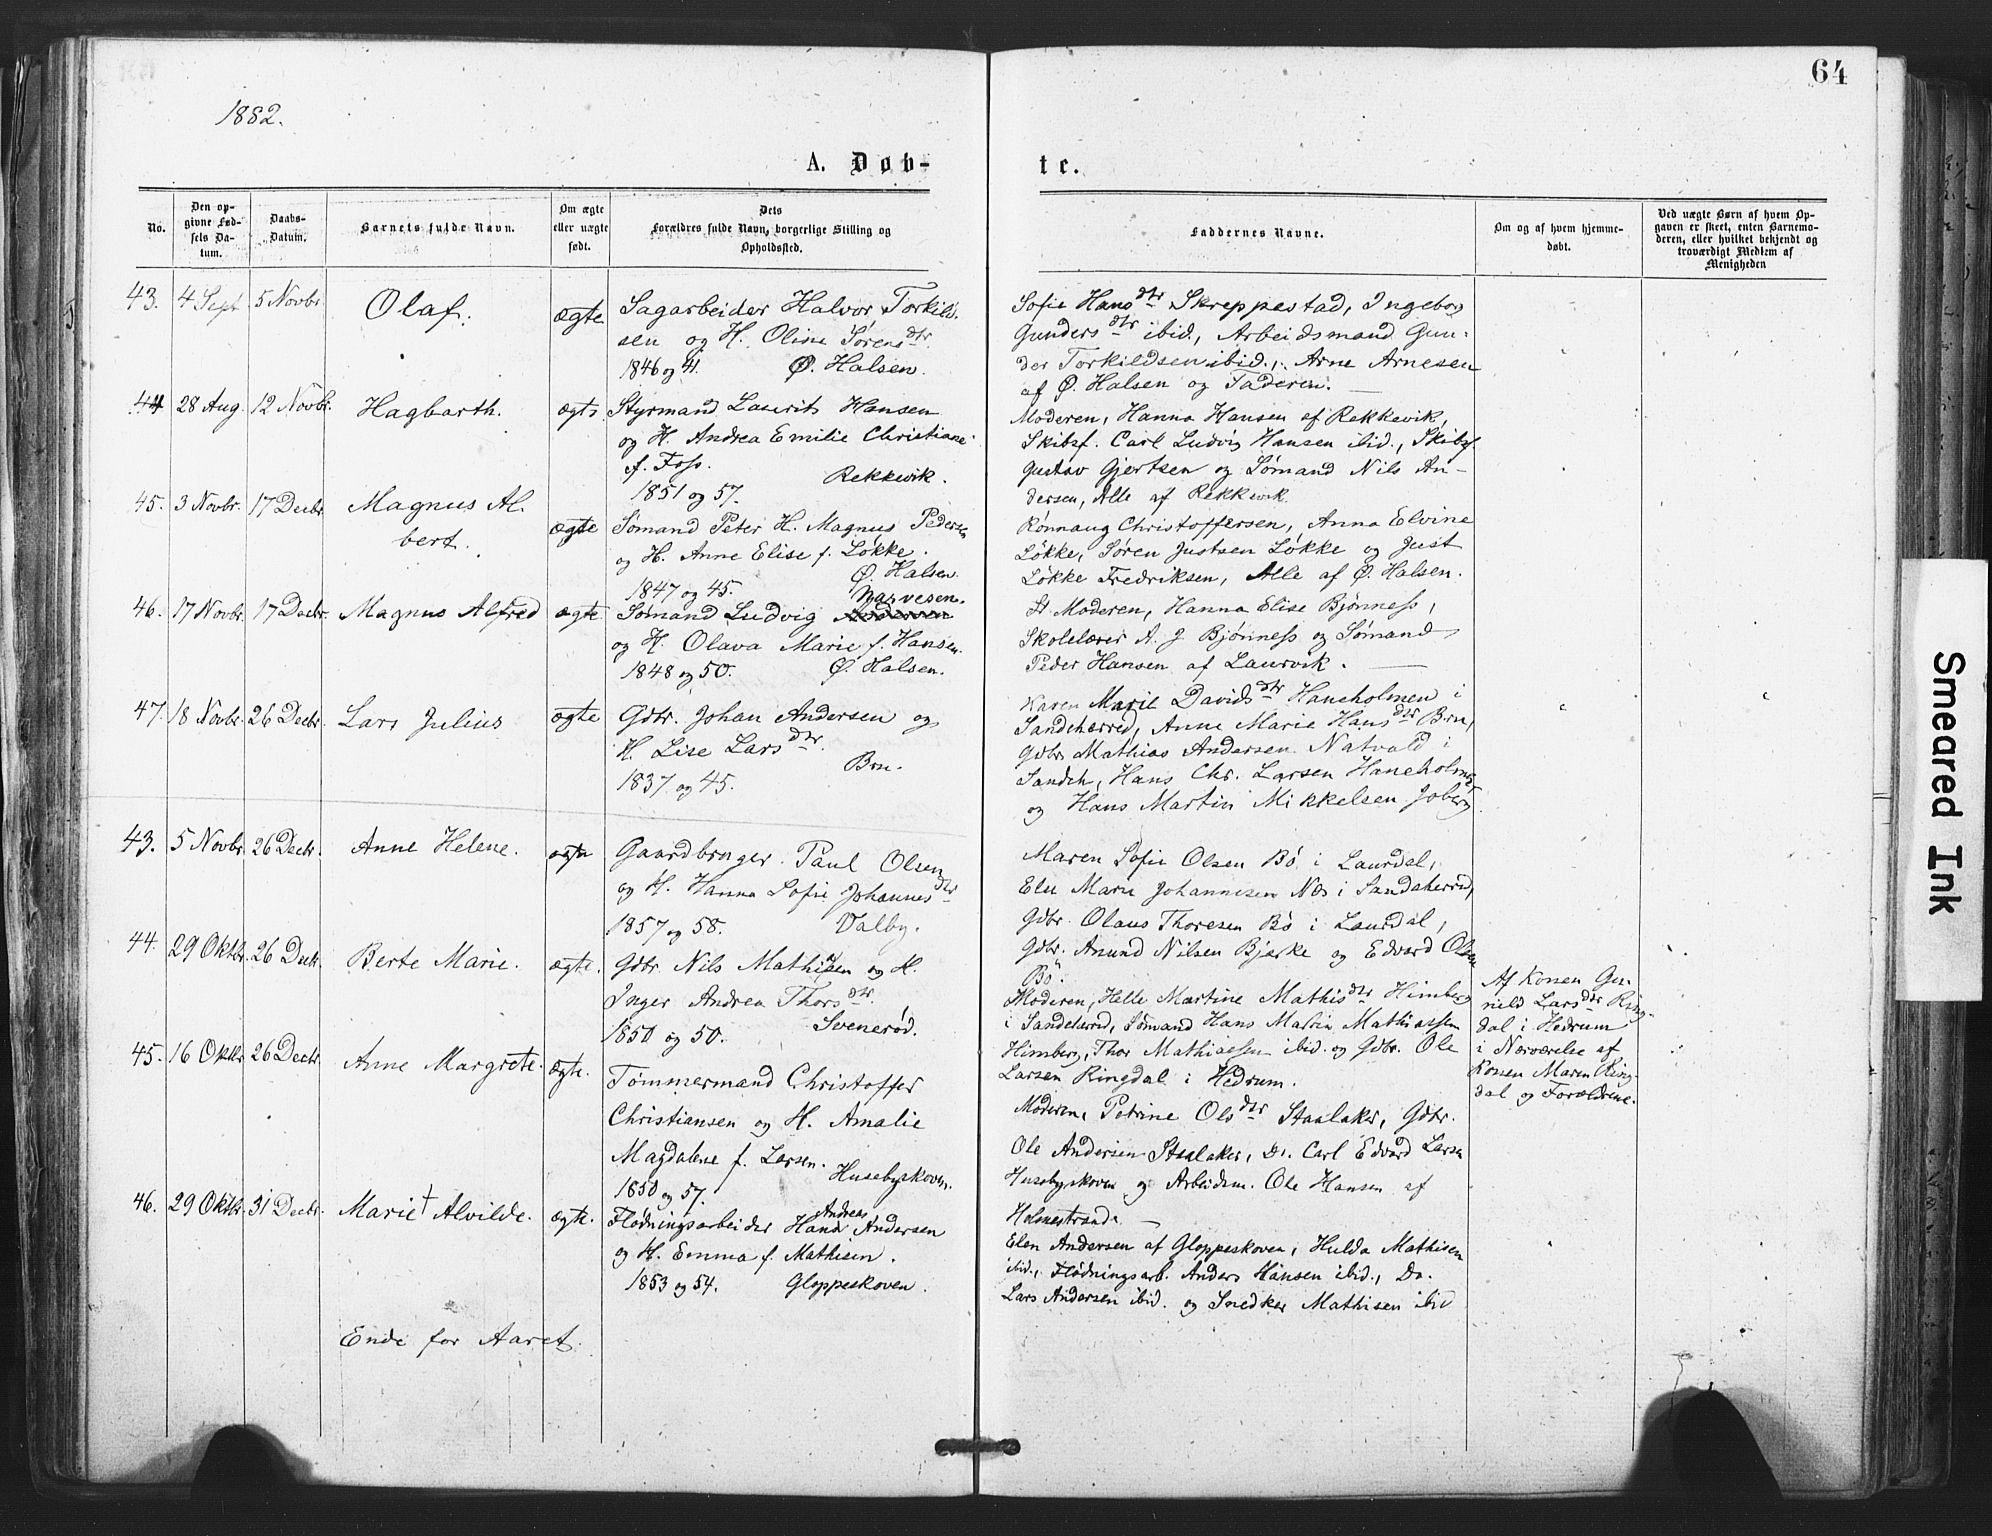 64
1882.
A. Døb-
te.
No.
Den op-
givne Fød-
sels Da-
tum.
Daabs-
Datum.
Barnets fulde Navn.
Om ægte
eller uægte
født.
Dets
Forældres fulde Navn, borgerlige Stilling og
Opholdssted.
Faddernes Navne.
Om og af hvem hjemme-
døbt.
Ved uægte Børn af hvem Op-
gaven er skeet, enten Barnemo-
deren, eller hvilket bekjendt og
troværdigt Medlem af
Menigheden
43. 4 Sept 5 Novbr. Olaf. ægte
Sagarbeider Halvor Torkild-
sen og H. Oline Sørensdtr.
1846 og 41. Ø. Halsen.
Sofie Hansdtr Skreppestad, Ingeborg
Gundersdtr ibid., Arbeidsmand Gun-
der Torkildsen ibid., Arne Arnesen
af Ø. Halsen og Faderen.
44 28 Aug. 12 Novbr. Hagbarth. ægte
Styrmand Laurits Hansen
og H. Andrea Emilie Christiane
f. Foss.
Rekkevik.
1851 og 57.
Moderen, Hanna Hansen af Rekkevik,
Skibsf. Carl Ludvig Hansen ibid., Skibsf.
Gustav Gjertsen og Sømand Nils An-
dersen, Alle af Rekkevik
45. 3 Novbr. 17 Decbr. Magnus Al-
bert. ægte
Sømand Peter H. Magnus Pedersen
og H. Anne Elise f. Løkke.
Ø. Halsen.
1847 og 45.
Rønnaug Christoffersen, Anna Elvine
Løkke, Søren Justsen Løkke og Just
Løkke Fredriksen, Alle af Ø. Halsen.
46. 17 Novbr. 17 Decbr. Magnus Alfred ægte
Narvesen.
Sømand Ludvig Andersen
og H. Olava Marie f. Hansen.
1848 og 50. Ø. Halsen.
Moderen, Hanna Elise Bjønness,
Skolelærer A. J. Bjønness og Sømand
Peder Hansen af Laurvik.
47. 18 Novbr. 26 Decbr. Lars Julius ægte
Gdbr. Johan Andersen og
H. Lise Larsdtr.
Brn.
1837 og 45.
Karen Marie Davidsdtr Haneholmen i
Sandeherred, Anne Marie Hansdtr Brn,
Gdbr. Mathias Andersen Natvald i
Sandeh, Hans Chr. Larsen Haneholmen
og Hans Martin Mikkelsen Joberg
43. 5 Novbr. 26 Decbr. Anne Helene. ægte
Gaardbruger Paul Olsen
og H. Hanna Sofie Johannesdtr
1857 og 58. Valby.
Maren Sofie Olsen Bö i Laurdal,
Elen Marie Johannesen Næs i Sandeherred,
Gdbr. Olaus Thoresen Bö i Laurdal,
Gdbr. Anund Nilsen Bjerke og Edvard Olsen
Bö.
44. 29 Oktbr. 26 Decbr. Berte Marie. ægte.
Gdbr. Nils Mathisen og H.
Inger Andrea Thorsdtr.
1850 og 50. Svenerød.
Moderen, Helle Martine Mathisdtr Himberg
i Sandeherred, Sømand Hans Martin Mathiassen
Himberg, Thor Mathiassen ibid. og Gdbr. Ole
Larsen Ringdal i Hedrum.
Af Konen Gu-
nild Larsdtr Ring-
dal i Hedrum
i Nærværelse af
Konen Maren Ring-
dal og Forældrene.
45. 16 Oktbr. 26 Decbr. Anne Margrete. ægte.
Tømmermand Christoffer
Christiansen og H. Amalie
Magdalene f. Larsen.
Husebyskoven.
1850 og 57.
Moderen, Petrine Olsdtr Staalaker, Gdbr.
Ole Andersen Staalaker, Do. Carl Edvard Larsen
Husebyskoven og Arbeidsm. Ole Hansen af
Holmestrand.
46. 29 Oktbr. 31 Decbr. Marie † Alvilde. ægte.
Andreas
Flødningsarbeider Hans Andersen
og H. Emma f. Mathisen.
1853 og 54. Gloppeskoven.
Elen Andersen af Gloppeskoven, Hulda Mathisen
ibid., Flødningsarb. Anders Hansen ibid., Do.
Lars Andersen ibid. og Snedker Mathisen ibid
Ende for Aaret.
Smeared Ink